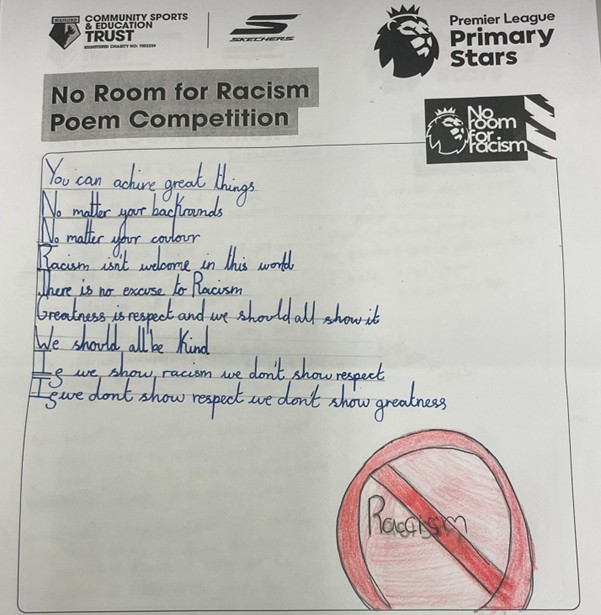 WATFORD
COMMUNITY SPORTS
& EDUCATION
TRUST
SKECHERS
Premier League
Primary
Stars
No Room for Racism
Poem Competition
No
room
for
racism
You can achive great things
No matter your backrounds
No matter your coulour
Racism isn't welcome in this world
There is no excuse to Racism
Greatness is respect and we should all show it
We should all be kind
If we show racism we don't show respect
If we dont show respect we don't show greatness
Racism